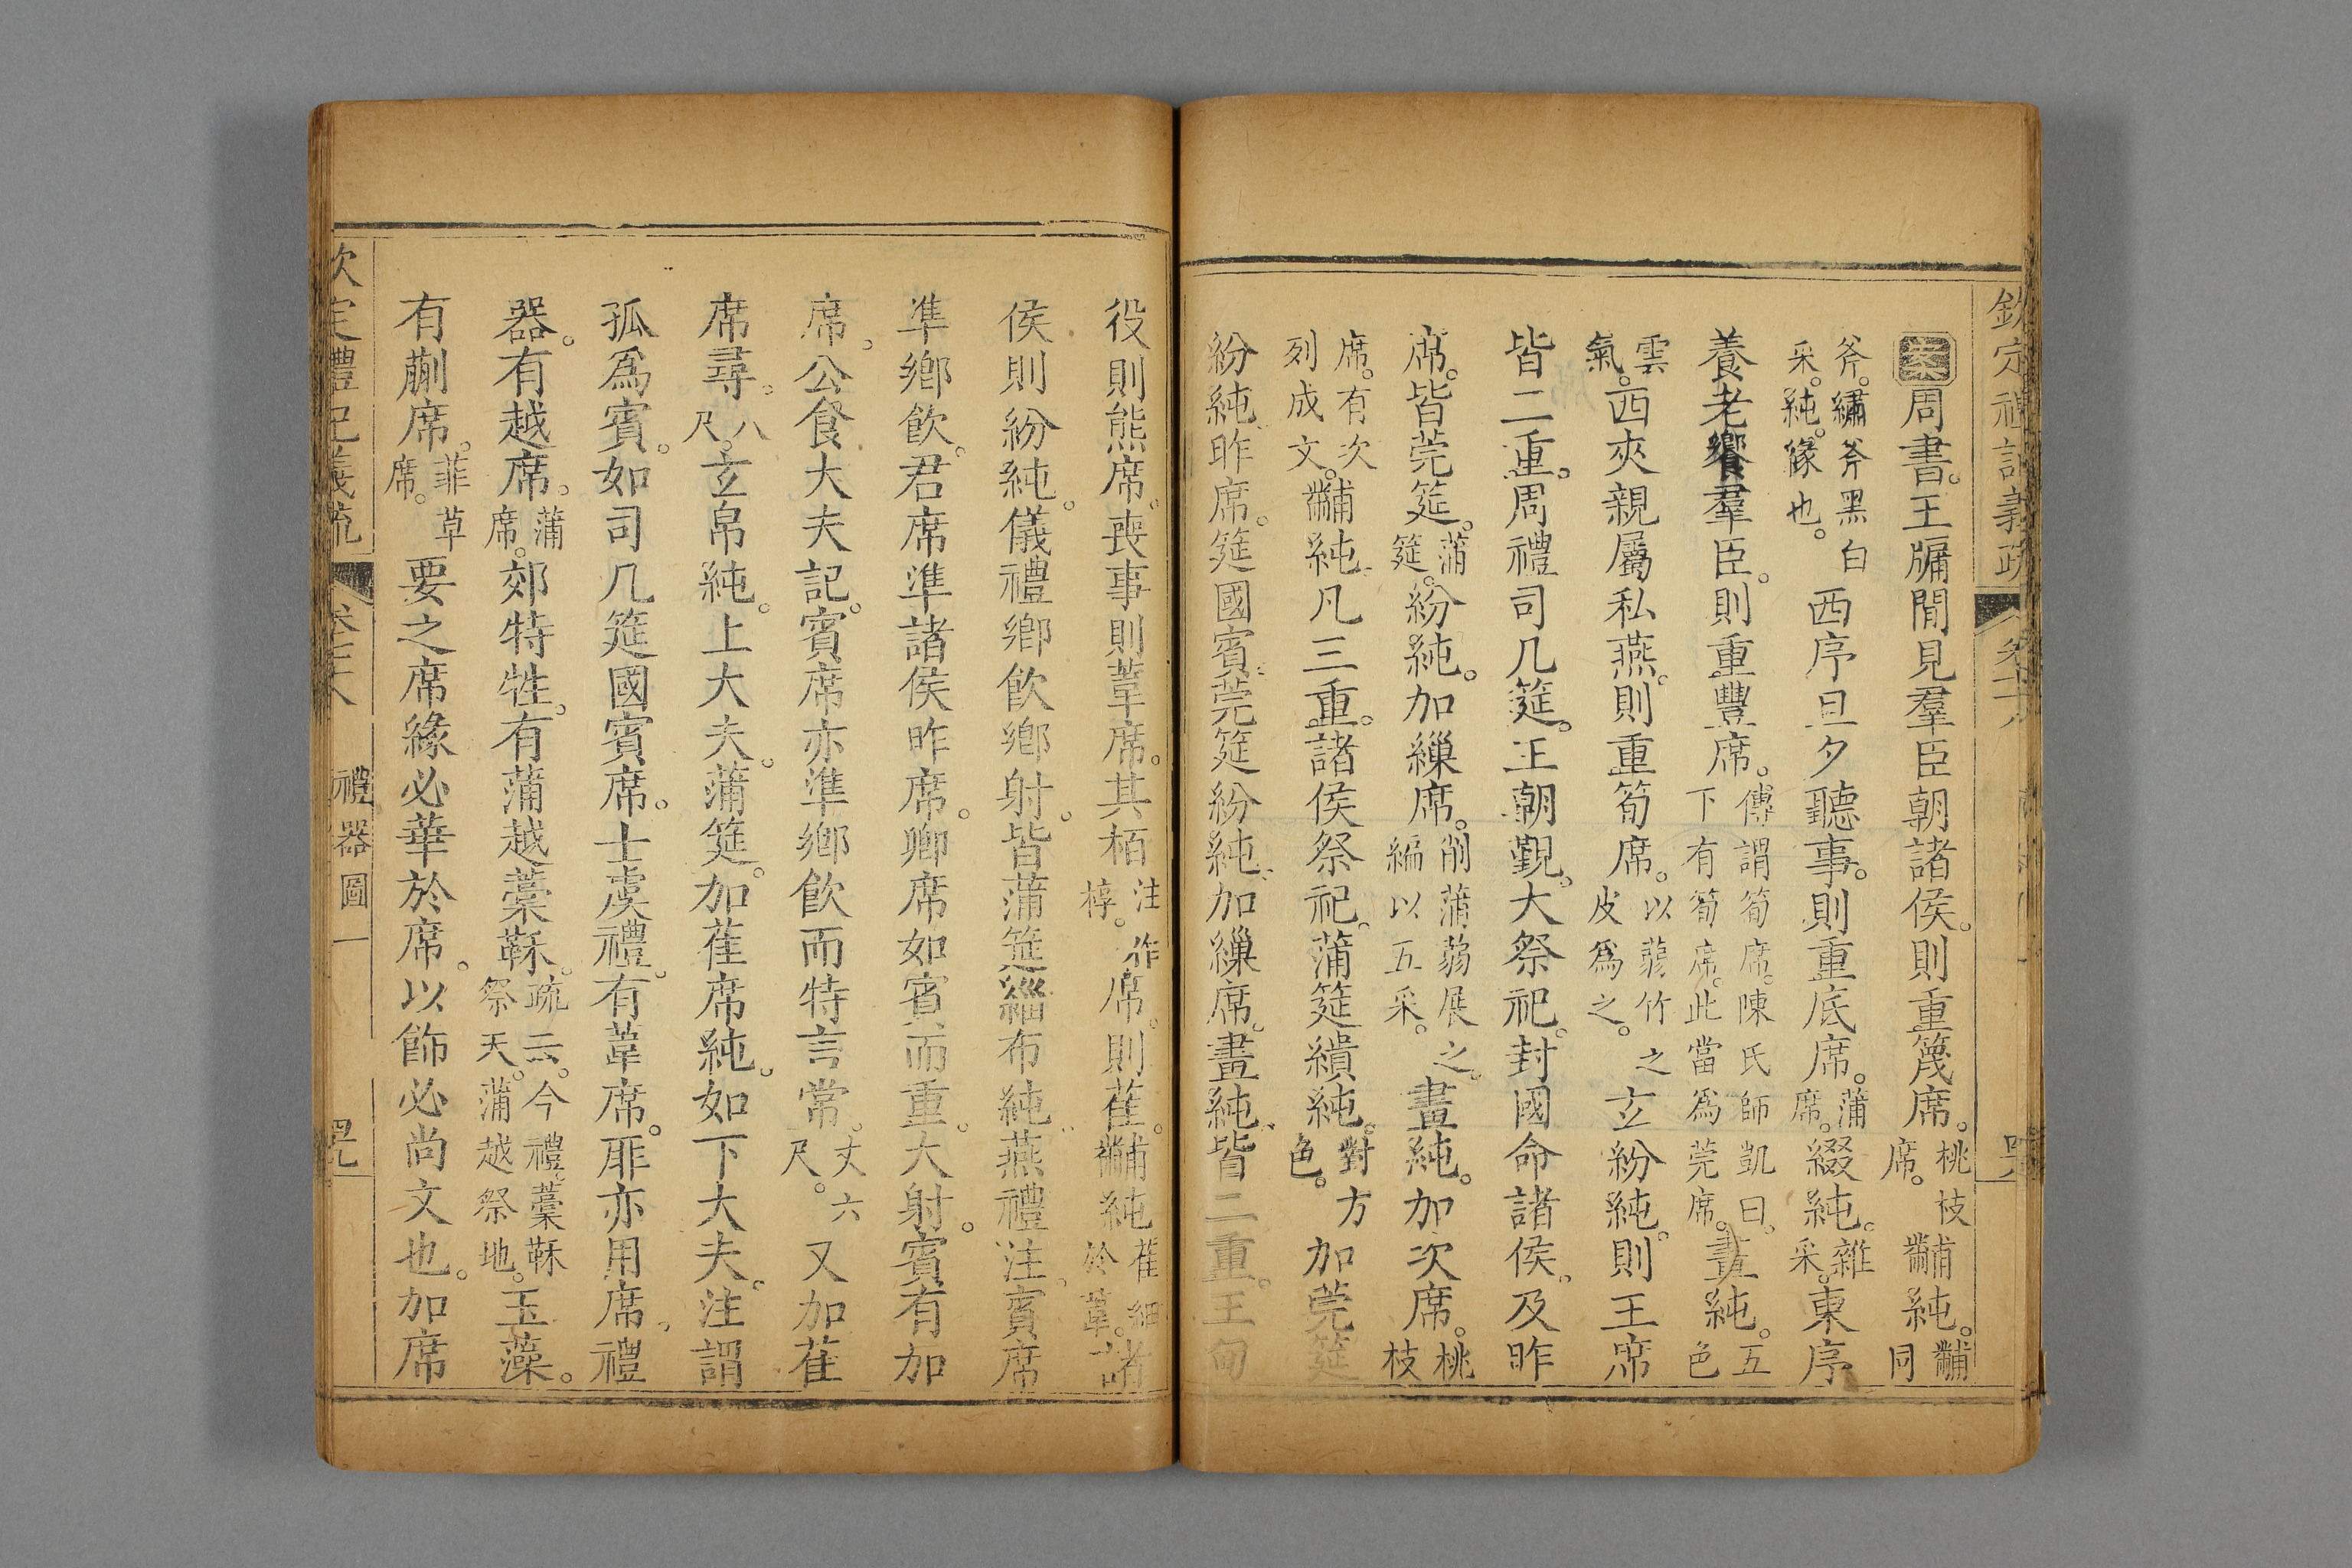 欽定禮記義疏 卷七十八
案周書。王牖閒見羣臣朝諸侯。則重篾席。桃枝席。黼純。黼同
斧。繡斧黑白采。純。緣也。西序旦夕聽事。則重底席。蒲席。綴純。雜采。東序
養老饗羣臣。則重豐席。傅謂筍席。陳氏師凱曰。下有筍席。此當爲莞席。畫純。五色
雲氣。西夾親屬私燕。則重筍席。以蒻竹之皮爲之。玄紛純。則王席
皆二重。周禮司几筵。王朝覲。大祭祀。封國命諸侯。及昨
席。皆莞筵。蒲筵。紛純。加繅席。削蒲蒻展之。編以五采。畫純。加次席。桃枝
席。有次列成文。黼純。凡三重。諸侯祭祀。蒲筵繢純。對方色。加莞筵
紛純。昨席。筵國賓。莞筵紛純。加繅席。畫純。皆二重。王甸
役則熊席。喪事則葦席。其栢注作椁。席。則萑。黼純萑細於葦。諸
侯則紛純。儀禮鄉飲鄉射。皆蒲筵緇布純。燕禮注。賓席
準鄉飲。君席準諸侯昨席。卿席如賓而重。大射。賓有加
席。公食大夫記。賓席亦準鄉飲而特言常。丈六尺。又加萑
席尋。八尺。玄帛純。上大夫。蒲筵。加萑席純。如下大夫。注謂
孤爲賓。如司几筵國賓席。士虞禮。有葦席。屝亦用席。禮
器。有越席。蒲席。郊特牲。有蒲越藁鞂。疏云。今禮。藁鞂祭天。蒲越祭地。玉藻。
有蒯席。菲草席。要之席緣必華於席。以飾必尚文也。加席
欽定禮記義疏 卷七十八 禮器圖一